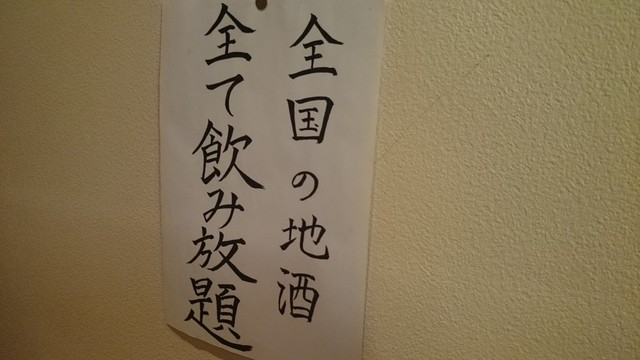 全国の地酒
全て飲み放題